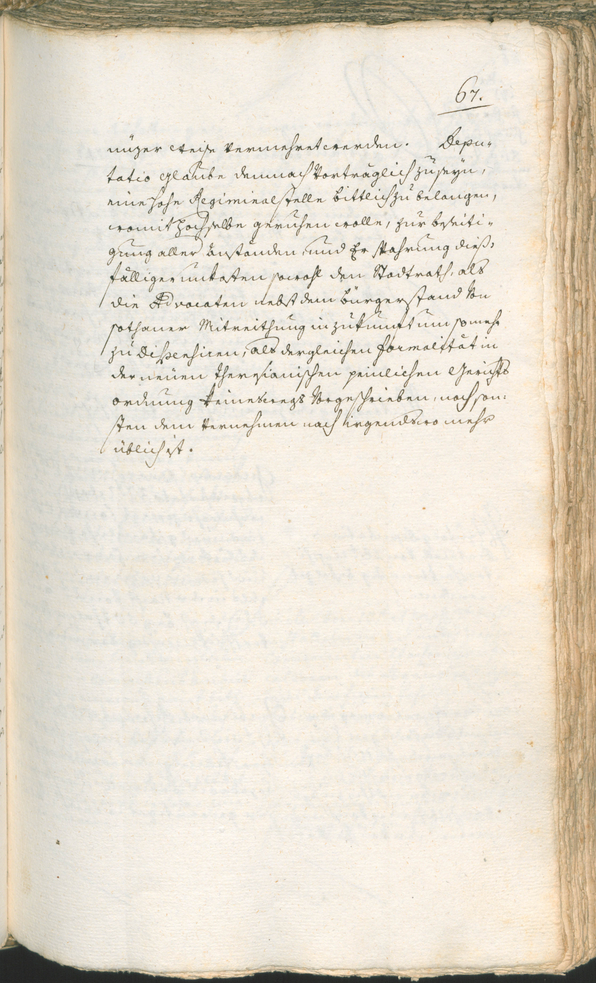 67.
nüzer weise vermehret werden. Depu-
tatio glaube demnach vorträglich zu seyn,
eine hohe Regiminalstelle bittlich zu belangen,
womit hochselbe geruhen wolle, zur beseiti-
gung aller Anständen, und Ersparung dies-
fälliger unkosten sowohl den Stadtrath, als
die Advocaten nebst dem bürgerstand von
sothaner Mitreithung in zukunft um so mehr
zu dispensiren, als dergleichen formalität in
der neuen theresianischen peinlichen Gerichts
ordnung keineswegs vorgeschrieben, noch son-
sten dem vernehmen nach irgendswo mehr
üblich ist.